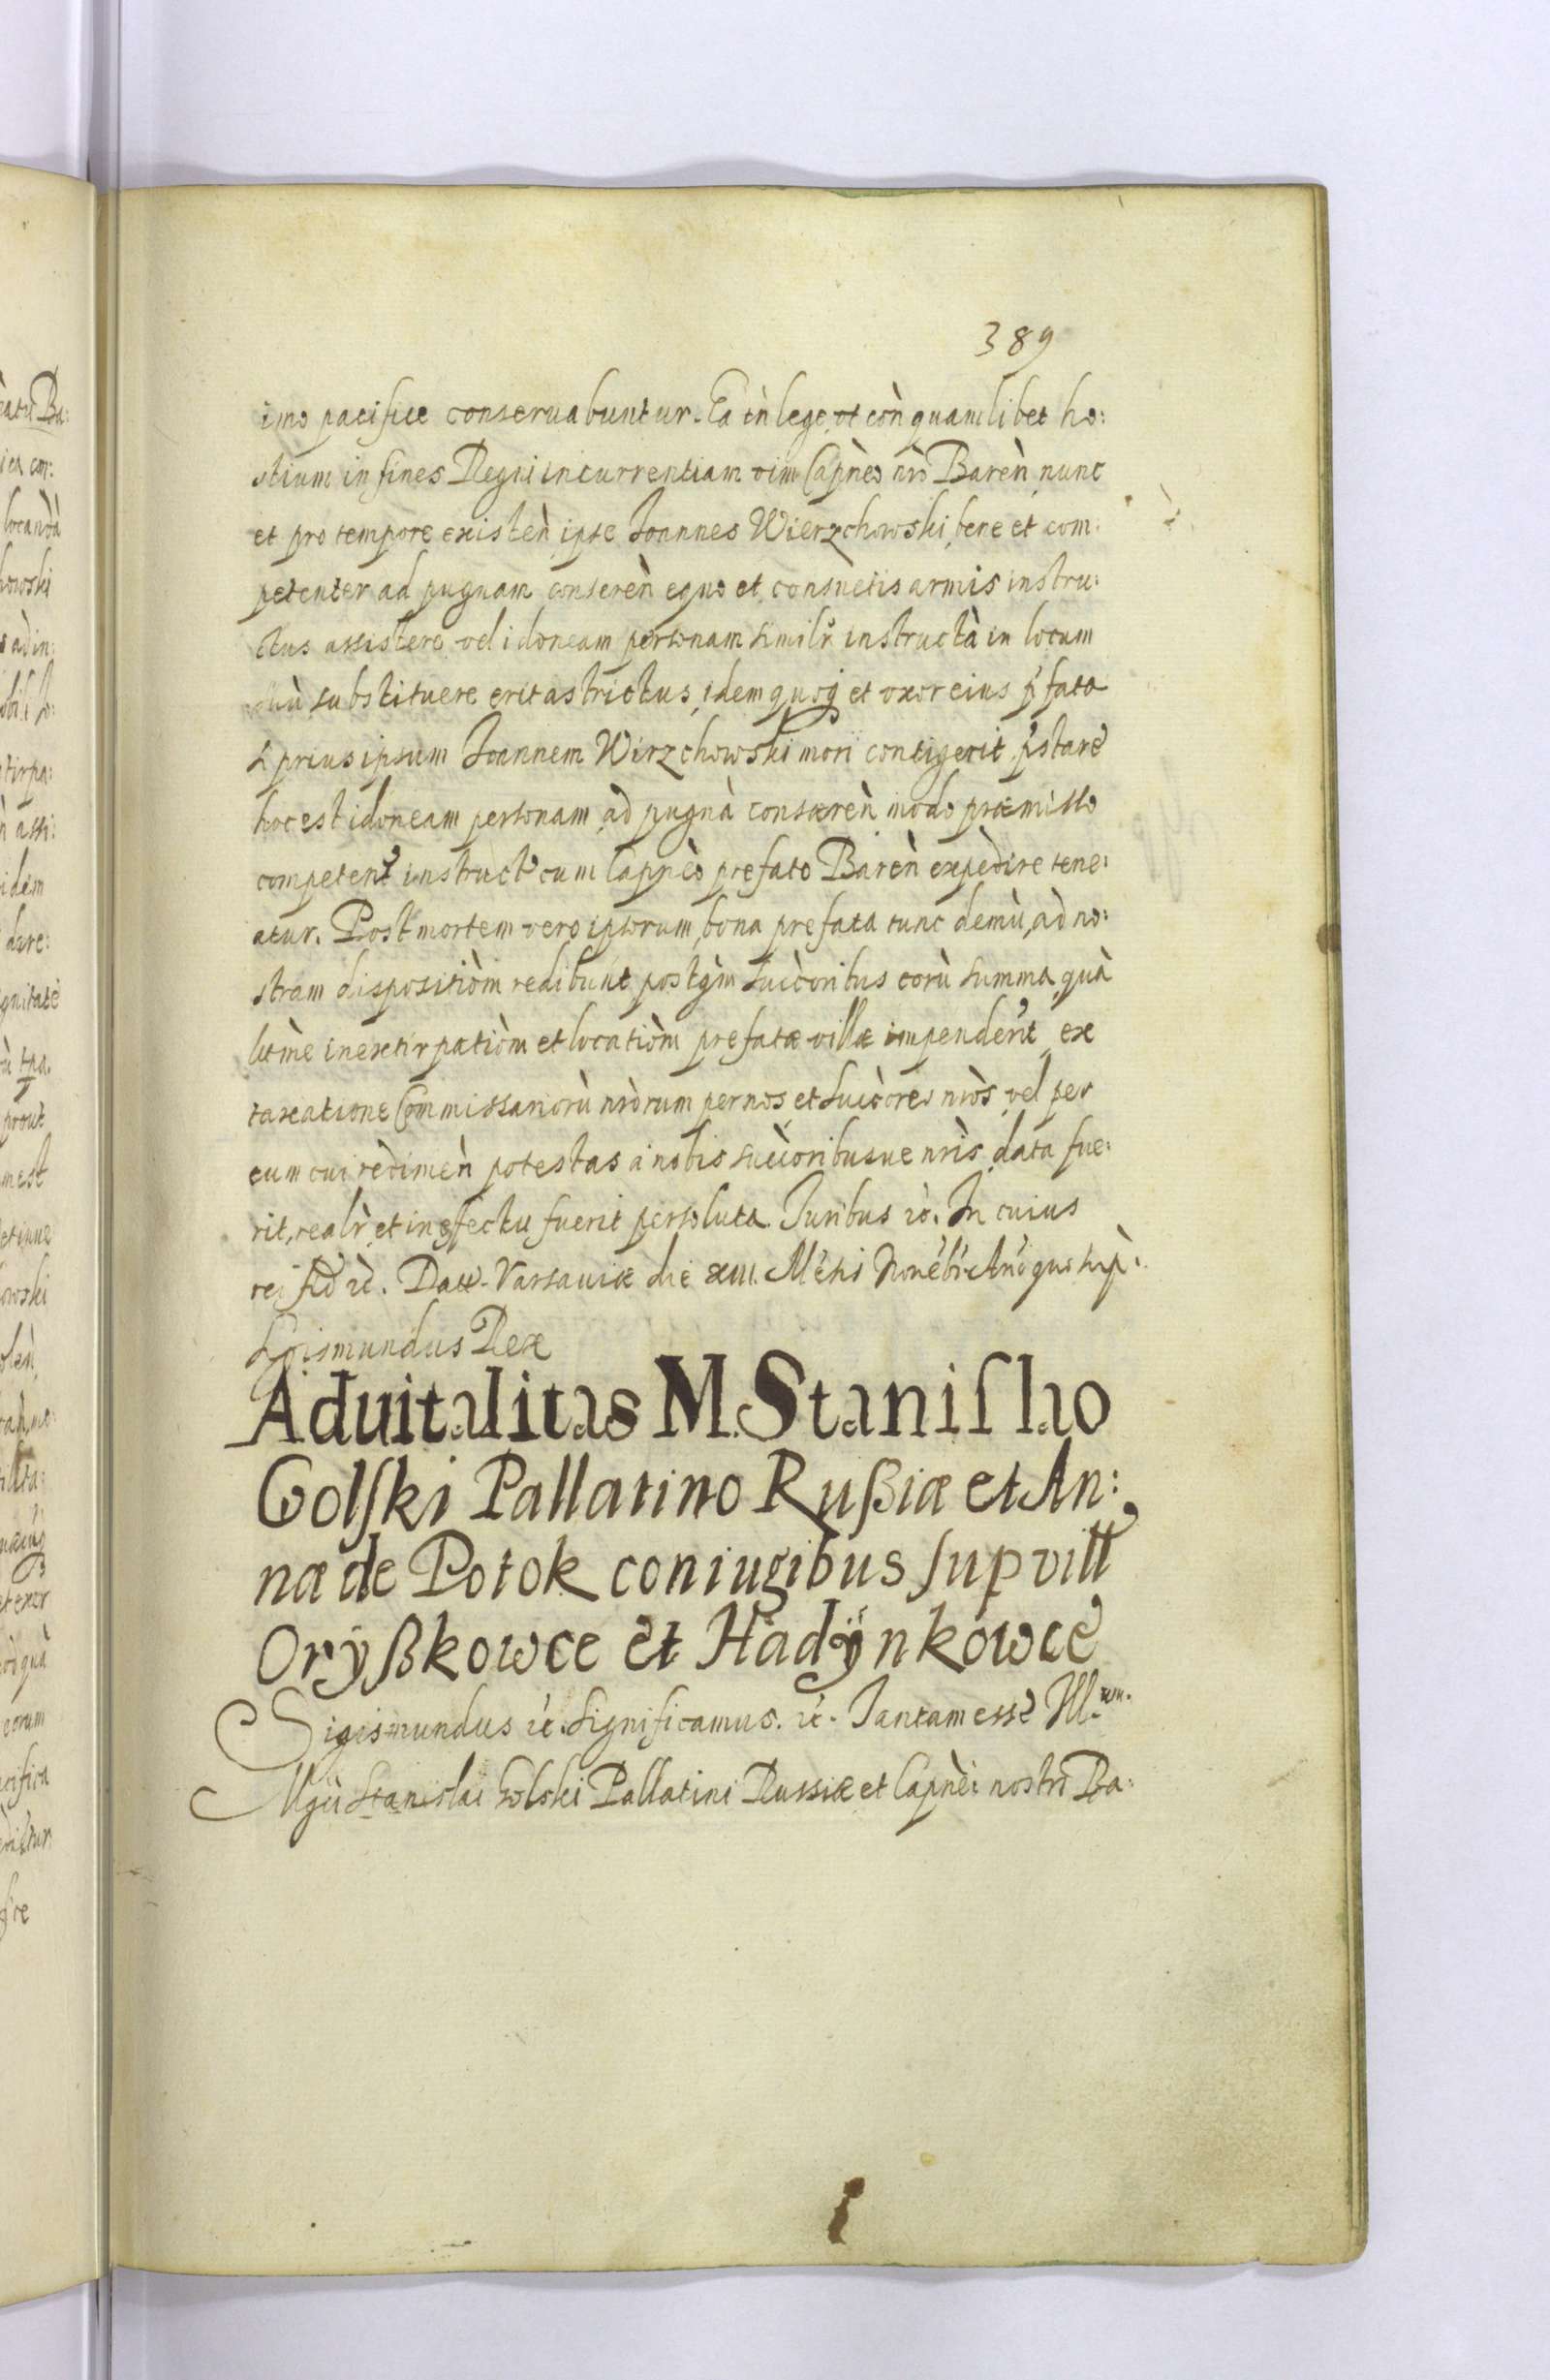 389
imo pacifice conseruabuntur. Ea tn̄ lege, ot con̄ quamlibet ho:
stium in fines Regni incurrentiam vim Capn̄eo nr̄o Baren̄, nunc
et pro tempore existen̄, ipse Joannes Wierzchowski, bene et com:
petenter ad pugnam conseren̄ equo et consuetis armis instru:
ctus assistere vel idoneam personam similr̄ instructā in locum
suū substituere erit astrictus, idem quoq et vxor eius p̄fata
si prius ipsum Joannem Wirzchowski mori contigerit, p̄stare
hoc est idoneam personam, ad pugnā conseren̄ modo præmisso
competen̄t instruct cum Capn̄eo prefato Baren̄ expedire tene:
atur. Post mortem vero ipsorum, bona prefata tunc demū, ad no:
stram dispositiōm redibunt, postqm̄ succoribus eorū summa, quā
litm̄e in extirpatiōm et locatiōm prefatæ villæ impender̄it, ex
taxatione Commissariorū nr̄orum per nos, et succores nr̄os, vel per
eum cui redimen̄ potestas a nobis succoribusue nr̄is data fue:
rit, realr̄, et in effectu fuerit persoluta. Juribus rc̄. In cuius
rei fid rc̄. Datt. Varsauiæ die XIII. Mēsis Nouēbr̄ Anō quo sup̄.
Sigismundus Rex
Aduitalitas M. Staniſlao
Golſki Pallatino Rußiæ et An:
næ de Potok coniugibus ſup vill
Oryßkowce et Hadÿnkowce
Sigismundus rc̄. Significamus. rc̄. Tantam esse Ill.rem.
Mgci Stanislai Golski Pallatini Russiæ et Capn̄ei nostri Ba: